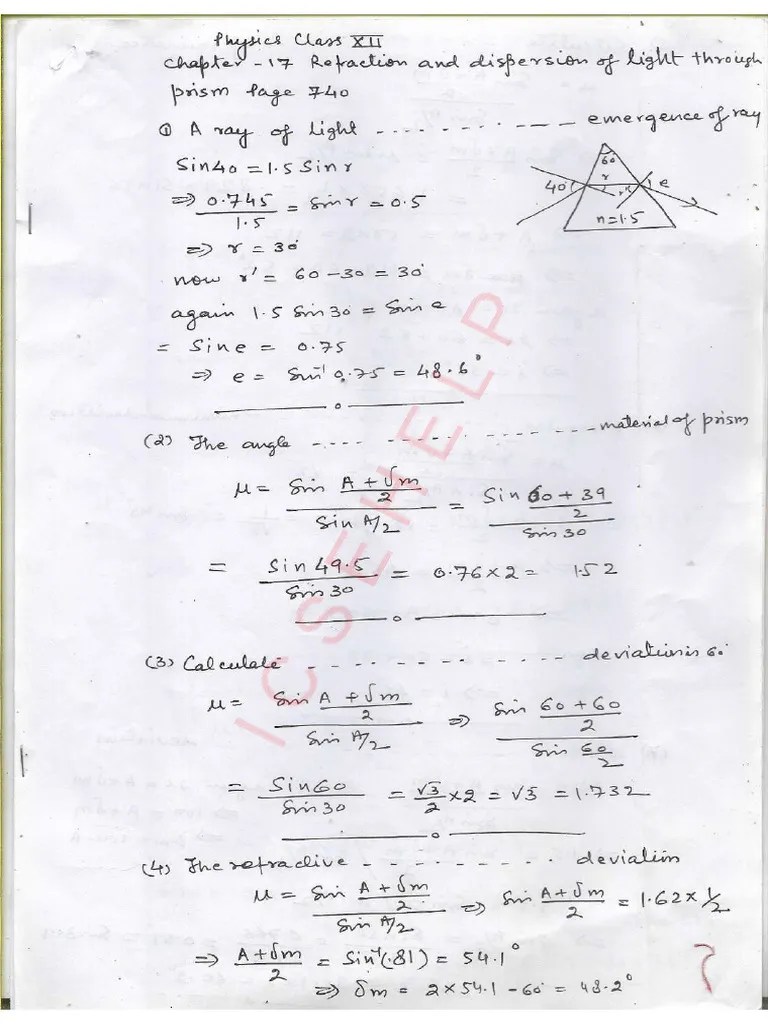 Physics Class XII
Chapter -17 Refaction and dispersion of light through
prism Page 740
① A ray of light ------------ emergence of ray
Sin40 = 1.5 Sin r
⇒ 0.745/1.5 = Sin r = 0.5
⇒ r = 30°
now r' = 60 - 30 = 30°
again 1.5 Sin 30 = Sin e
= Sin e = 0.75
⇒ e = Sin⁻¹ 0.75 = 48.6°
60
40
r
r'
e
n=1.5
(2) The angle ---- ------------ material of prism
μ = Sin (A + δm)/2 / Sin A/2 = Sin (60 + 39)/2 / Sin 30
= Sin 49.5 / Sin 30 = 0.76 × 2 = 1.52
(3) Calculate ------------ deviation is 60°
μ = Sin (A + δm)/2 / Sin A/2 ⇒ Sin (60 + 60)/2 / Sin 60/2
= Sin 60 / Sin 30 = √3/2 × 2 = √3 = 1.732
(4) The refractive ---------- deviation
μ = Sin (A + δm)/2 / Sin A/2 ⇒ Sin (A + δm)/2 = 1.62 × 1/2
⇒ (A + δm)/2 = Sin⁻¹(.81) = 54.1°
⇒ δm = 2 × 54.1 - 60° = 48.2°
ICSEHELP